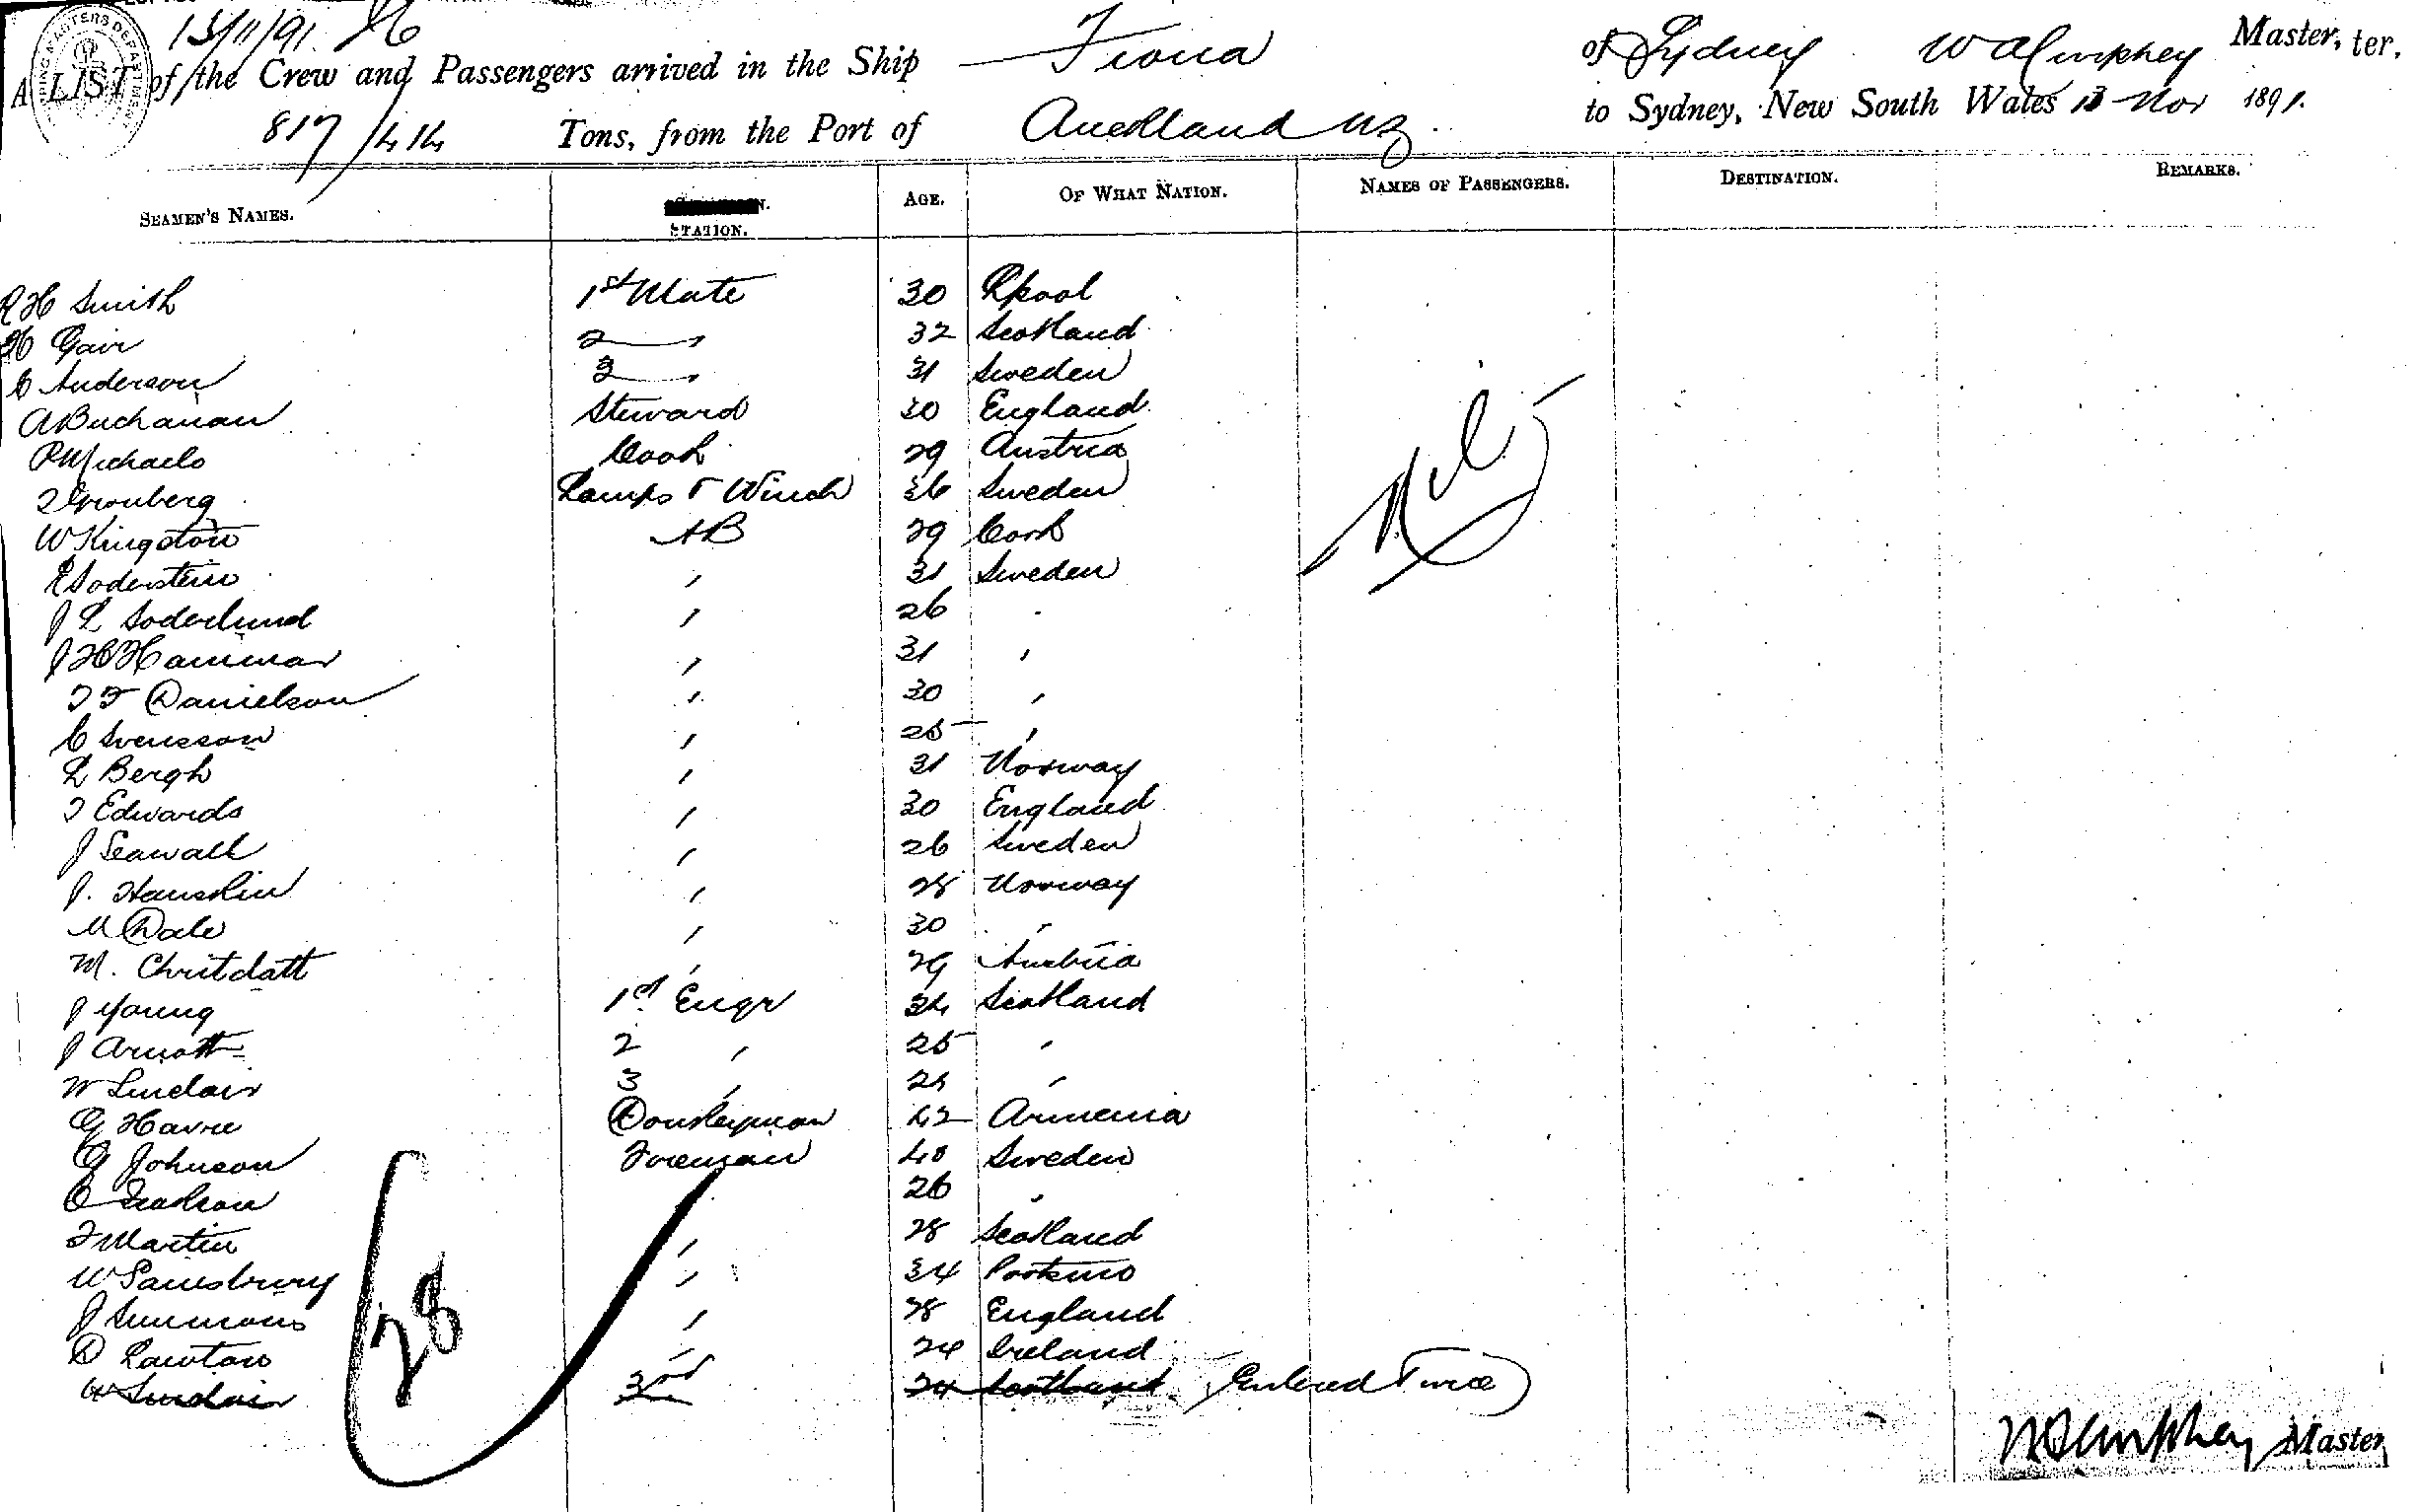 13/11/91.
A LIST of the Crew and Passengers arrived in the Ship Fiona of Sydney Master, ter.
817 Tons, from the Port of Auckland NZ. to Sydney, New South Wales 13 Nov 1891.
SEAMEN'S NAMES. STATION. AGE. OF WHAT NATION. NAMES OF PASSENGERS. DESTINATION. REMARKS.
R H Smith 1st Mate 30 Lpool
H Gair 2 " 32 Scotland
C Anderson 3 " 31 Sweden
A Buchanan Steward 30 England
P Michaels Cook 29 Austria
Lamps & Winch 36 Sweden
W Kingston AB 29 Cork
Soderstein " 31 Sweden
J L Soderlund " 26 "
J H Hammar " 31 "
T F Danielson " 30 "
C Svensson " 25 "
L Bergh " 31 Norway
T Edwards " 30 England
J Seawall " 26 Sweden
J. Hanskin " 28 Norway
M Dale " 30 "
M. Christdatt " 29 Austria
J Young 1st Engr 34 Scotland
J Arnott 2 " 25 "
W Sinclair 3 " 24 "
G Havre Donkeyman 42 Armenia
G Johnson Foreman 40 Sweden
26 "
T Martin " 28 Scotland
W Sainsbury " 34
J Simmons " 28 England
D Lawton " 24 Ireland
W Sinclair 3rd 24 Scotland Entered Twice
Nil
28
Master